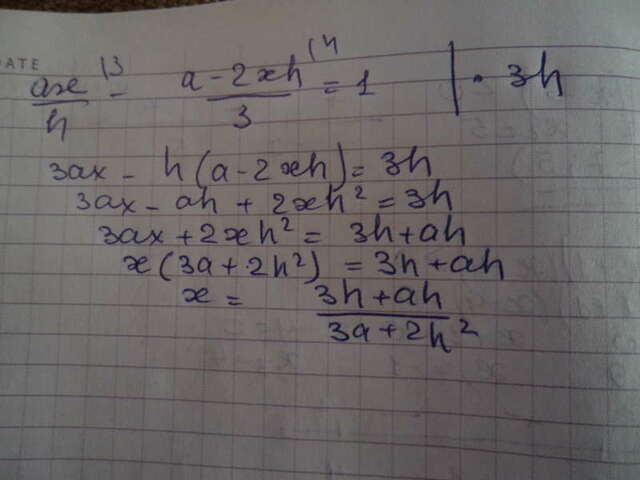 DATE
ax/h (3 - a-2xh/3 (h = 1 | · 3h
3ax - h(a-2xh) = 3h
3ax - ah + 2xh² = 3h
3ax + 2xh² = 3h+ah
x(3a+2h²) = 3h+ah
x = 3h+ah/3a+2h²